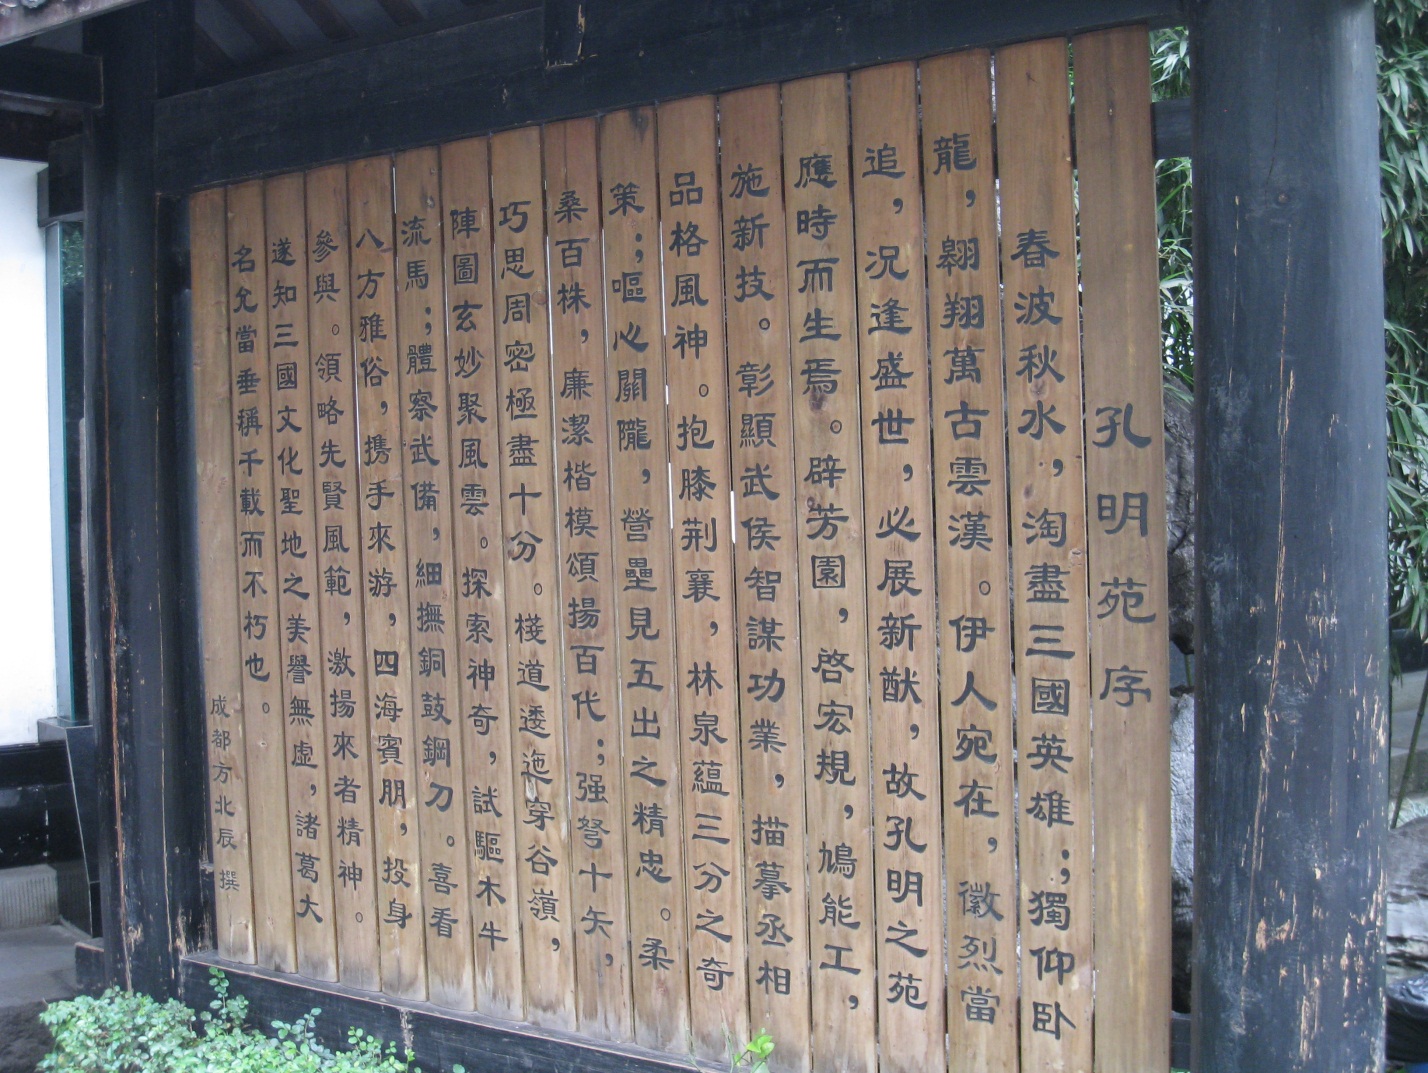 孔明苑序
春波秋水，淘盡三國英雄；獨仰卧
龍，翱翔萬古雲漢。伊人宛在，徽烈當
追，况逢盛世，必展新猷，故孔明之苑
應時而生焉。辟芳園，啓宏規，鳩能工，
施新技。彰顯武侯智謀功業，描摹丞相
品格風神。抱膝荆襄，林泉蘊三分之奇
策；嘔心關隴，營壘見五出之精忠。柔
桑百株，廉潔楷模頌揚百代；强弩十矢，
巧思周密極盡十分。棧道逶迤穿谷嶺，
陣圖玄妙聚風雲。探索神奇，試驅木牛
流馬；體察武備，細撫銅鼓鋼刀。喜看
八方雅俗，携手來游，四海賓朋，投身
參與。領略先賢風範，激揚來者精神。
遂知三國文化聖地之美譽無虚，諸葛大
名允當垂稱千載而不朽也。
成都方北辰撰